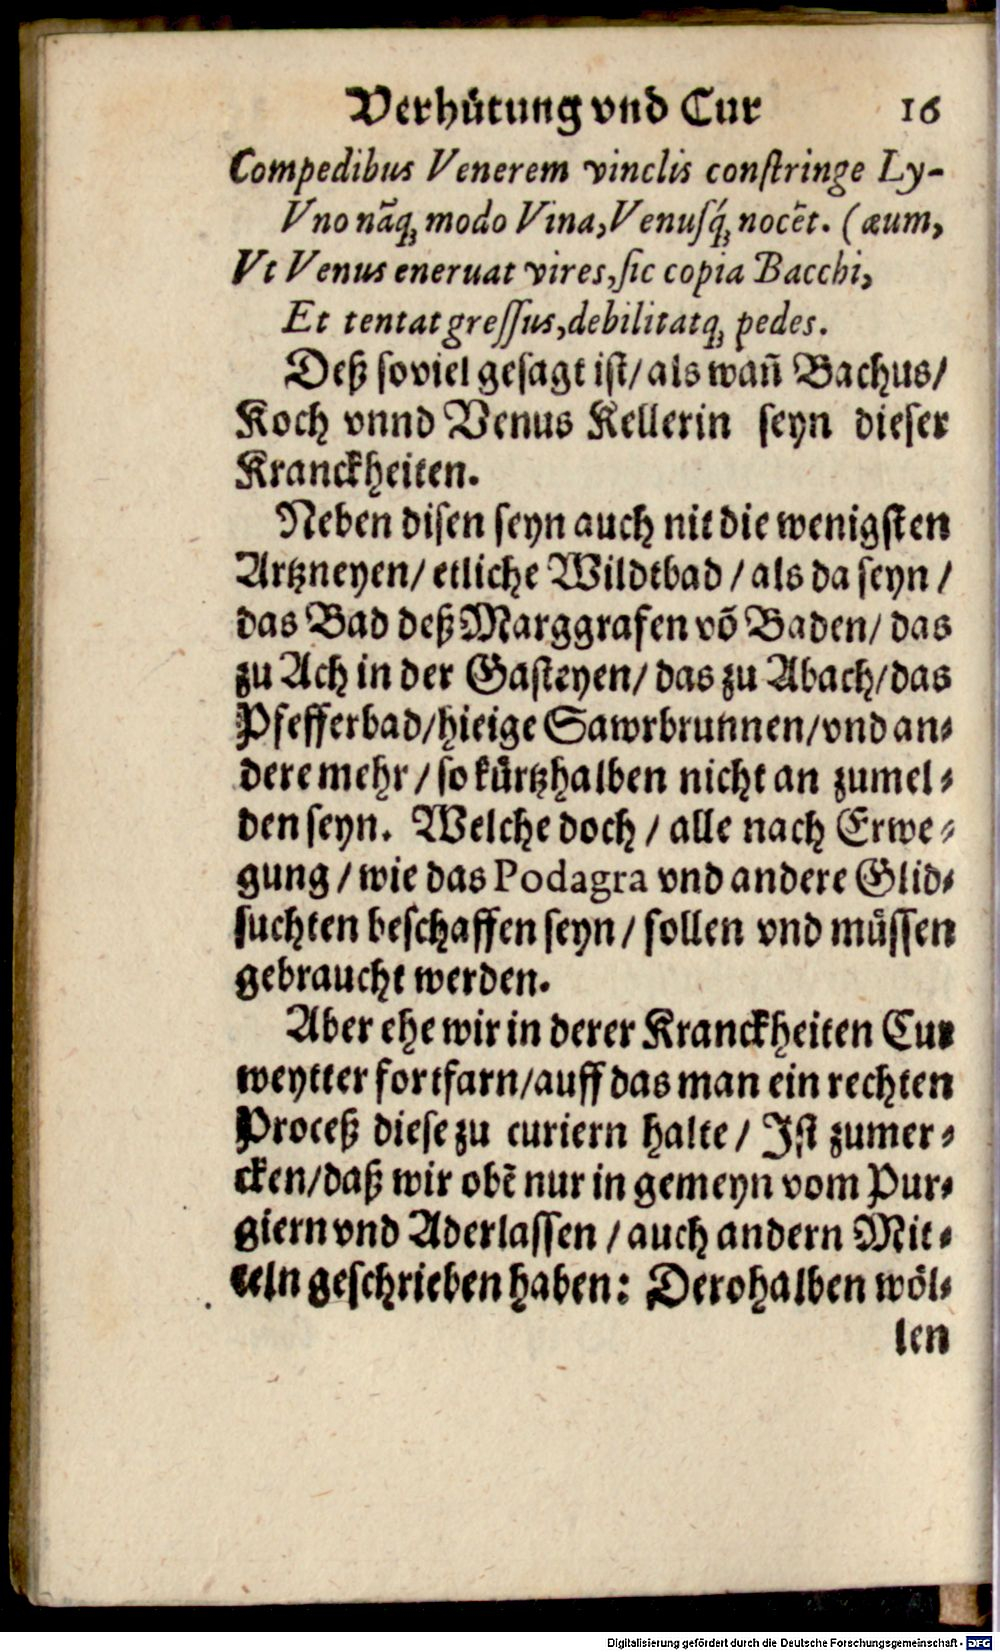 Verhütung vnd Cur 16
Compedibus Venerem vinclis conſtringe Ly-
Vno nāq́; modo Vina, Venuſq́; nocēt. (æum,
Vt Venus eneruat vires, ſic copia Bacchi,
Et tentat greſſus, debilitatq; pedes.
Deß soviel gesagt ist/ als wañ Bachus/
Koch vnnd Venus Kellerin seyn dieser
Kranckheiten.
Neben disen seyn auch nit die wenigsten
Artzneyen/ etliche Wildtbad / als da seyn /
das Bad deß Marggrafen võ Baden/ das
zu Ach in der Gasteyen/ das zu Abach/das
Pfefferbad/hieige Sawrbrunnen/vnd an-
dere mehr / so kürtzhalben nicht an zumel-
den seyn. Welche doch / alle nach Erwe-
gung / wie das Podagra vnd andere Glid-
suchten beschaffen seyn / sollen vnd müssen
gebraucht werden.
Aber ehe wir in derer Kranckheiten Cur
weytter fortfarn/auff das man ein rechten
Proceß diese zu curiern halte / Ist zumer-
cken/daß wir obē nur in gemeyn vom Pur-
giern vnd Aderlassen / auch andern Mit-
teln geschrieben haben: Derohalben wöl-
len
Digitalisierung gefördert durch die Deutsche Forschungsgemeinschaft - DFG